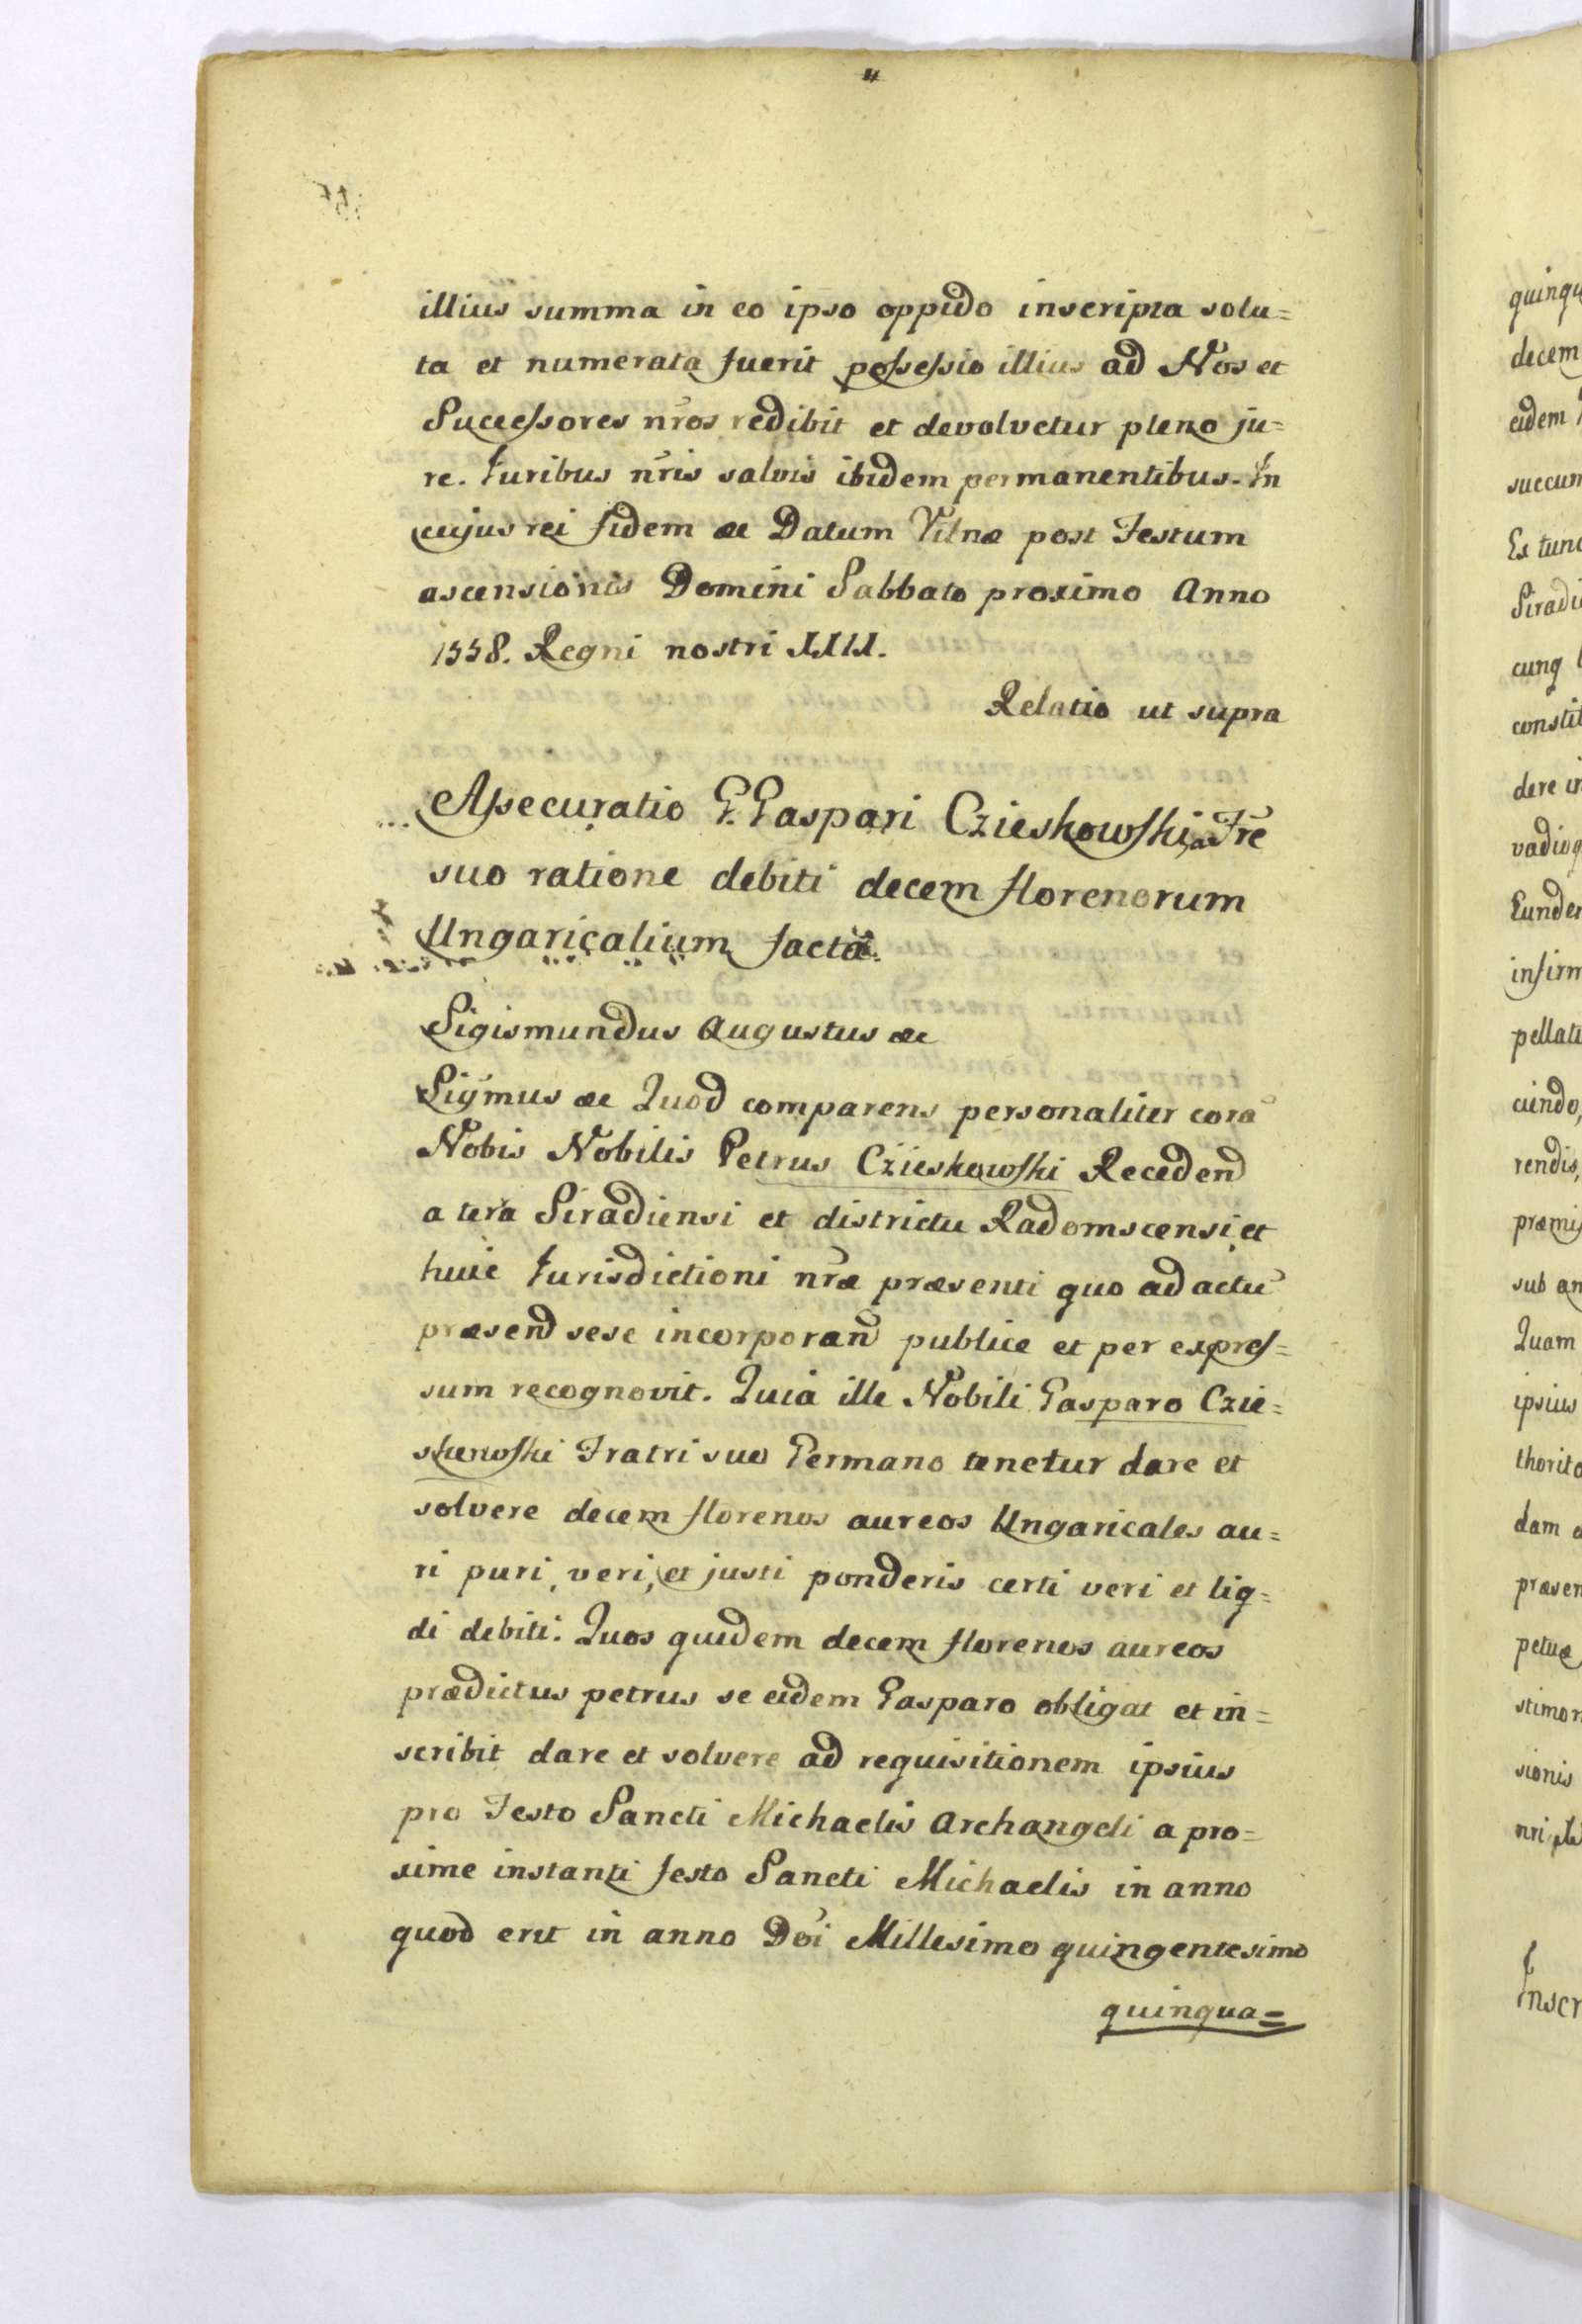 illius summa in eo ipso oppido inscripta solu=
ta et numerata fuerit possessio illius ad Nos et
Successores nr̃os redibit et devolvetur pleno ju=
re. Juribus nr̃is salvis ibidem permanentibus. In
cujus rei fidem &c Datum Vilnæ post Festum
ascensionis Domini Sabbato proximo Anno
1558. Regni nostri XXIX.
Relatio ut supra
Assecuratio G. Gaspari Czieskowski a Frẽ
suo ratione debiti decem florenorum
Ungaricalium facta.
Sigismundus Augustus &c
Sigmus &c Quod comparens personaliter corã
Nobis Nobilis Petrus Czieskowski Recedend
a terã Siradiensi et districtu Radomscensi et
huic Jurisdictioni nr̃æ præsenti quo ad actũ
præsend sese incorporand publice et per expres=
sum recognovit. Quia ille Nobili Gasparo Czie=
skowski Fratri suo Germano tenetur dare et
solvere decem florenos aureos Ungaricales au=
ri puri, veri, et justi ponderis certi veri et liq=
di debiti. Quos quidem decem florenos aureos
prædictus petrus se eidem Gasparo obligat et in=
scribit dare et solvere ad requisitionem ipsius
pro Festo Sancti Michaelis Archangeli a pro=
xime instanti festo Sancti Michaelis in anno
quod erit in anno Dõi Millesimo quingentesimo
quinqua=
quinqu
decem
eidem
succum
Ex tunc
Siradi
cunq
constit
dere in
vadioq
Eunder
infirm
pellati
ciendo,
rendis,
præmis
sub an
Quam
ipsius
thorita
dam
præsen
petuæ
stimon
sionis
Inscr